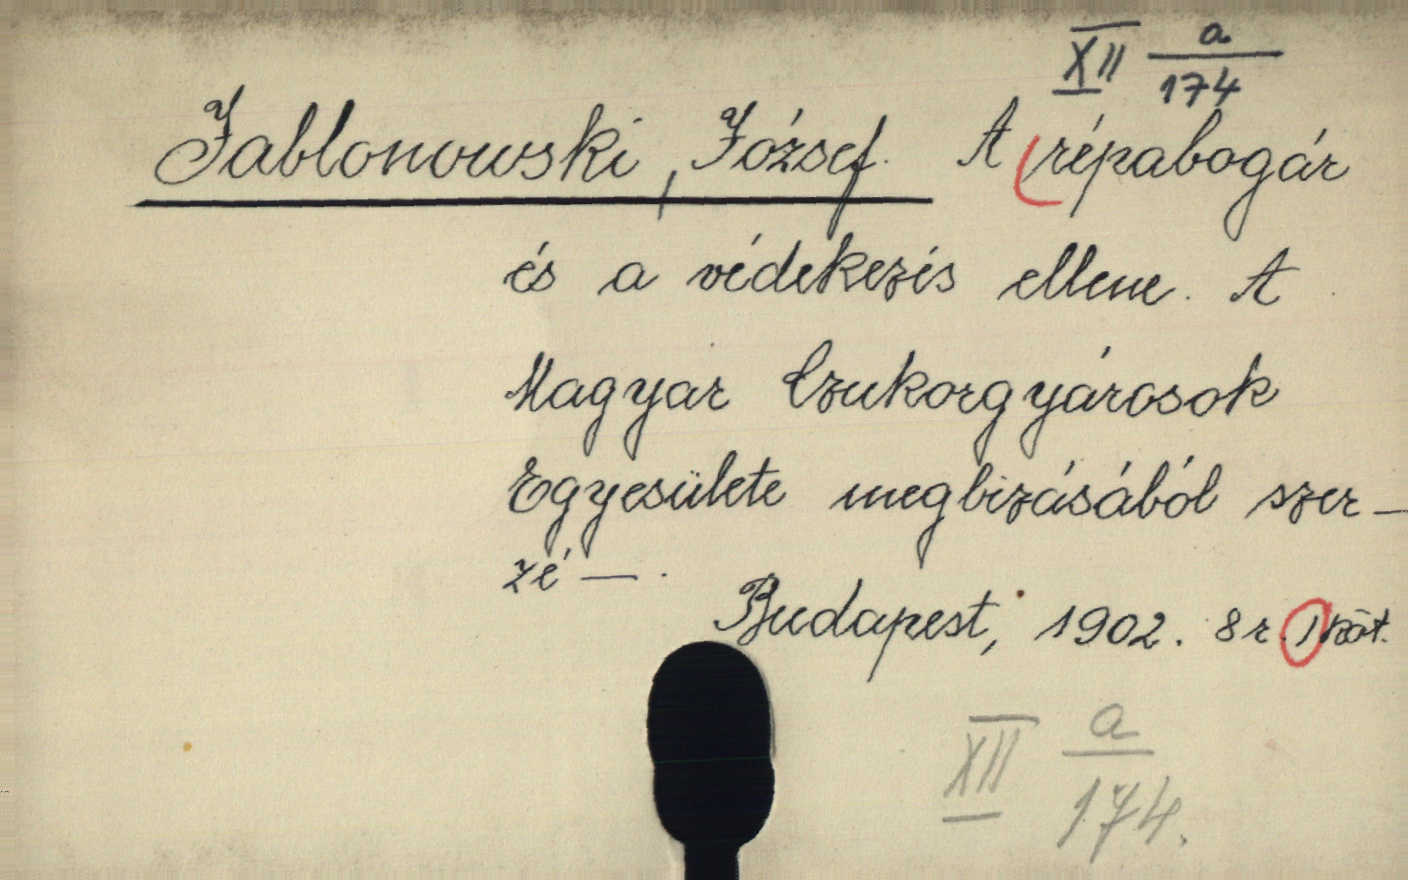 XII a/174
Jablonowski, József. A répabogár
és a védekezés ellene. A
Magyar Czukorgyárosok
Egyesülete megbizásából szer-
zé —.
Budapest, 1902. 8r. 1 köt.
XII a/174.